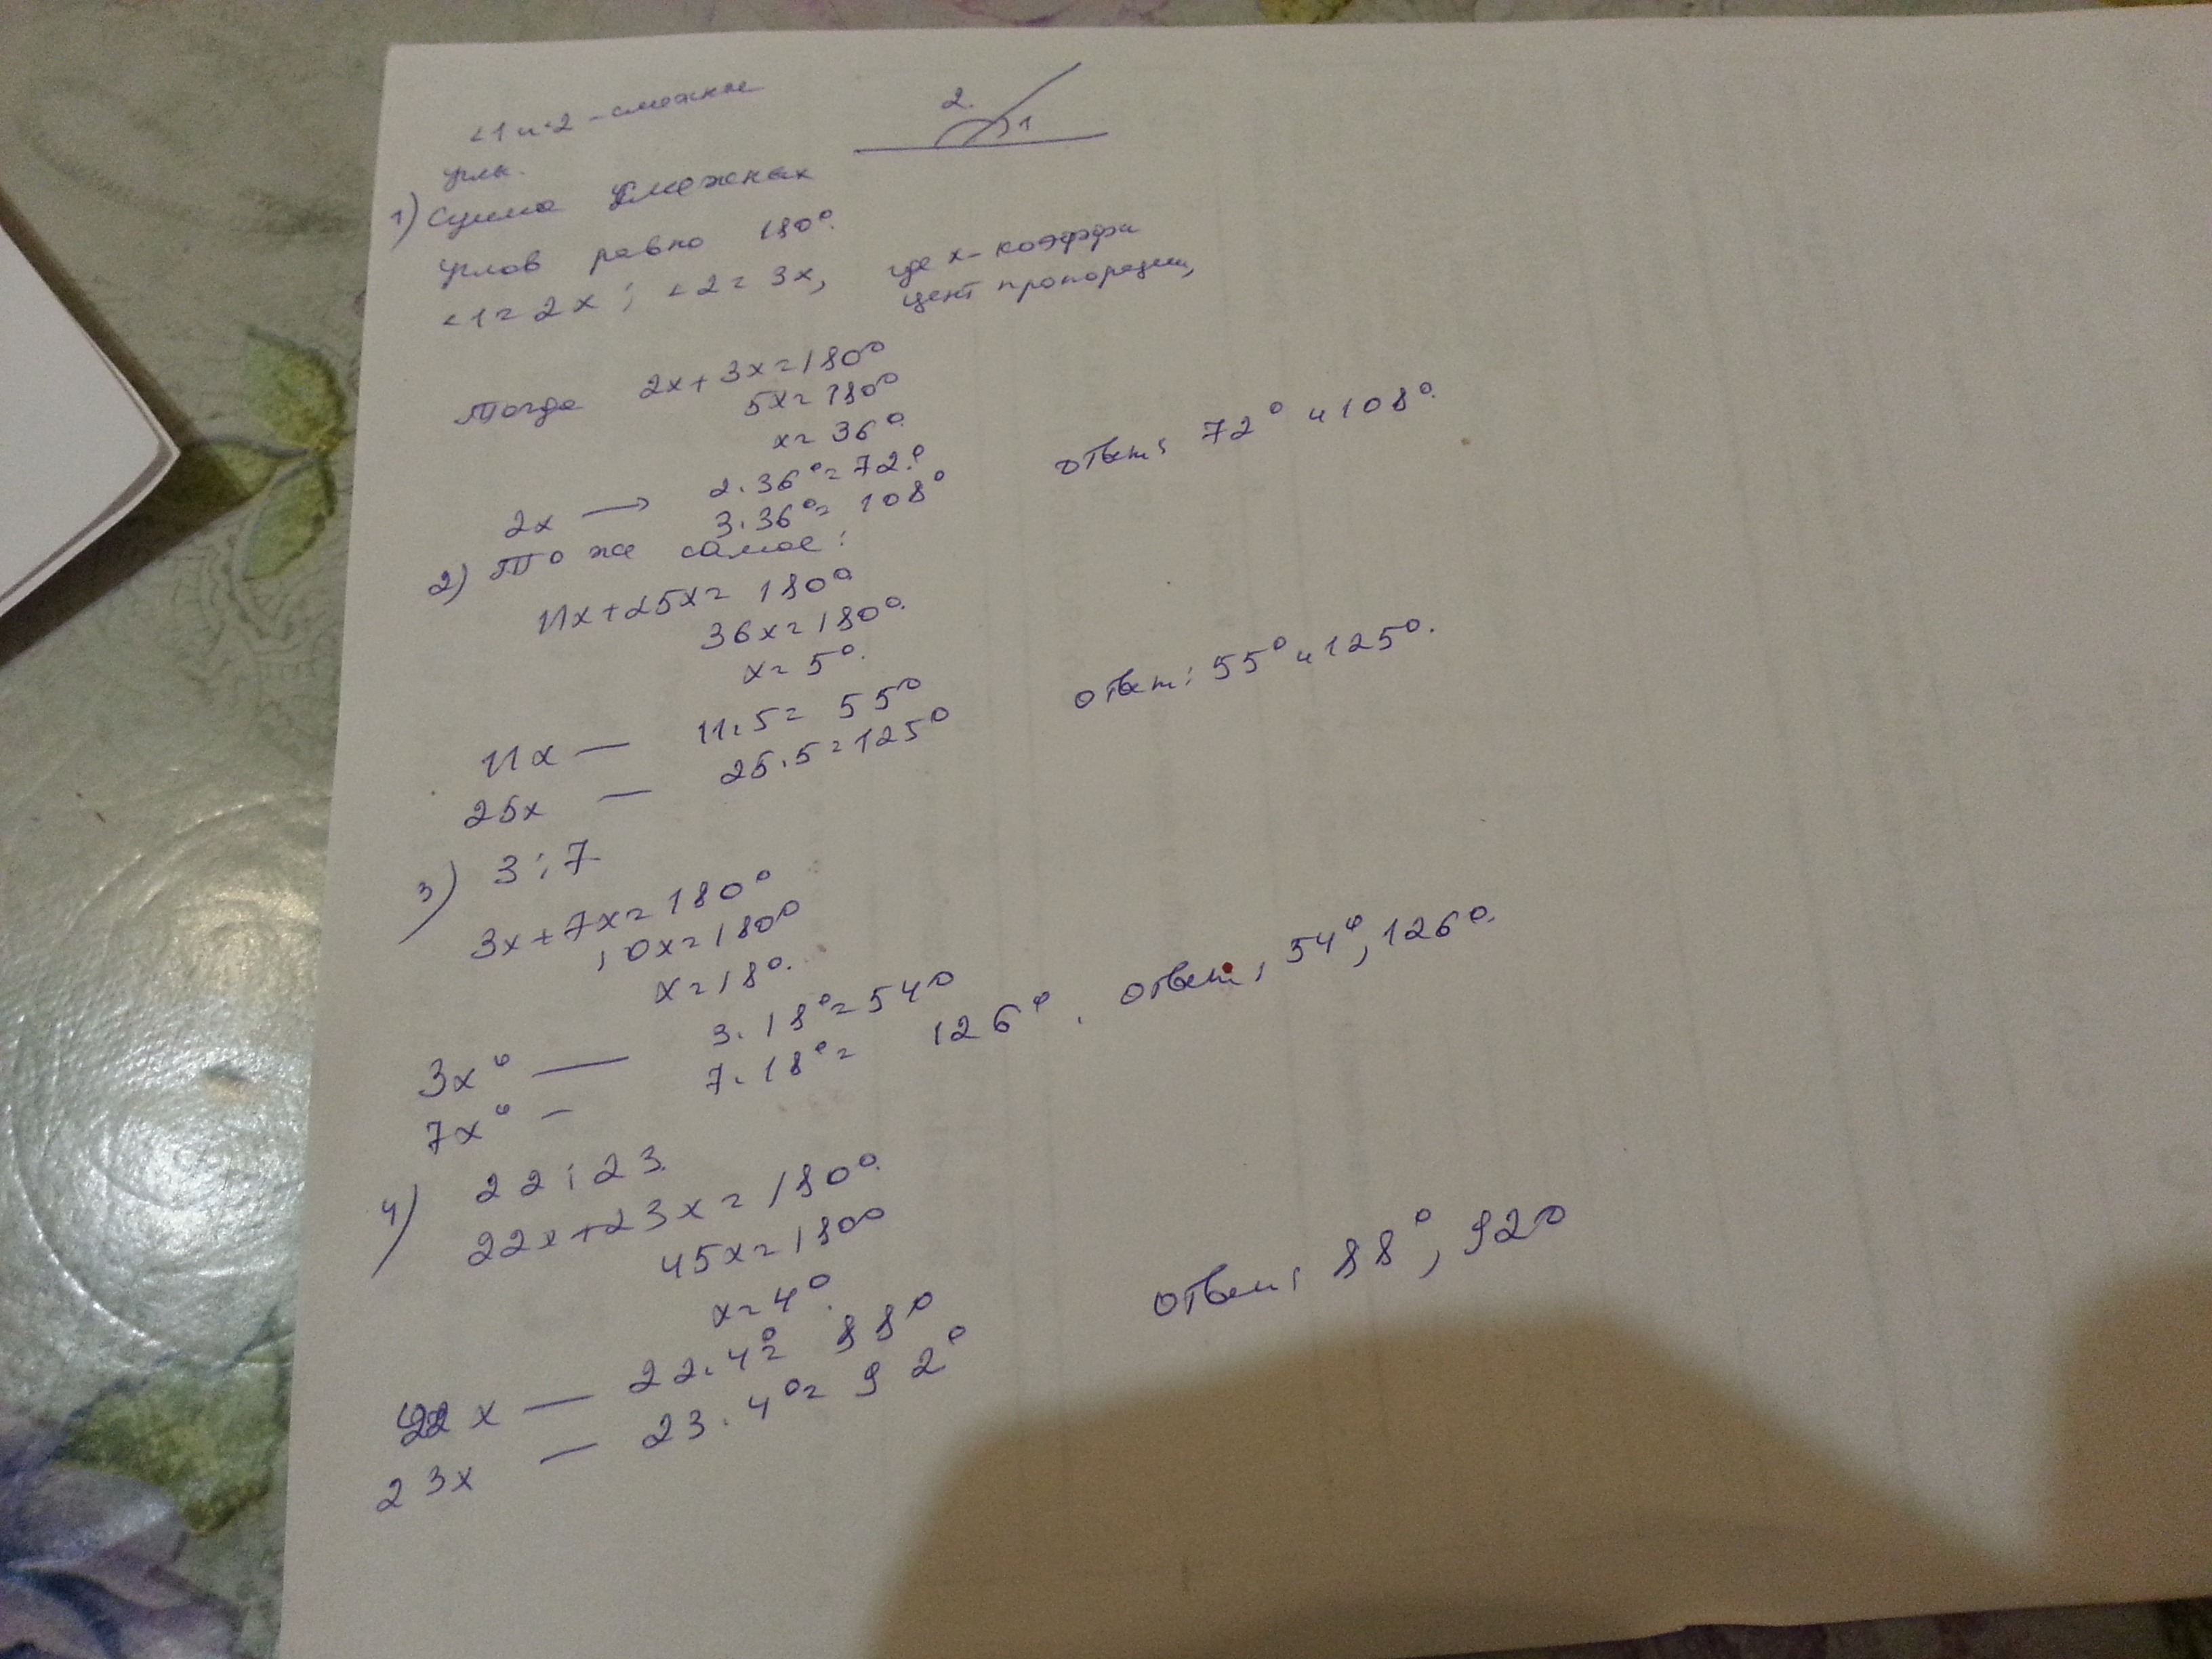 <1 и <2 - смежные
углы.
2
1
1) Сумма смежных
углов равно 180°.
<1 = 2x ; <2 = 3x, где x - коэффи
циент пропорции,
тогда 2x + 3x = 180°
5x = 180°
x = 36°.
2x → 2·36° = 72°.
3·36° = 108°
ответ: 72° и 108°.
2) то же самое:
11x + 25x = 180°
36x = 180°.
x = 5°.
11x — 11·5 = 55°
25x — 25·5 = 125°
ответ: 55° и 125°.
3) 3:7
3x + 7x = 180°
10x = 180°
x = 18°.
3x° — 3·18° = 54°
7x° — 7·18° = 126°. ответ: 54°, 126°.
4) 22:23
22x + 23x = 180°.
45x = 180°
x = 4°.
22x — 22·4° = 88°
23x — 23·4° = 92°
ответ: 88°, 92°